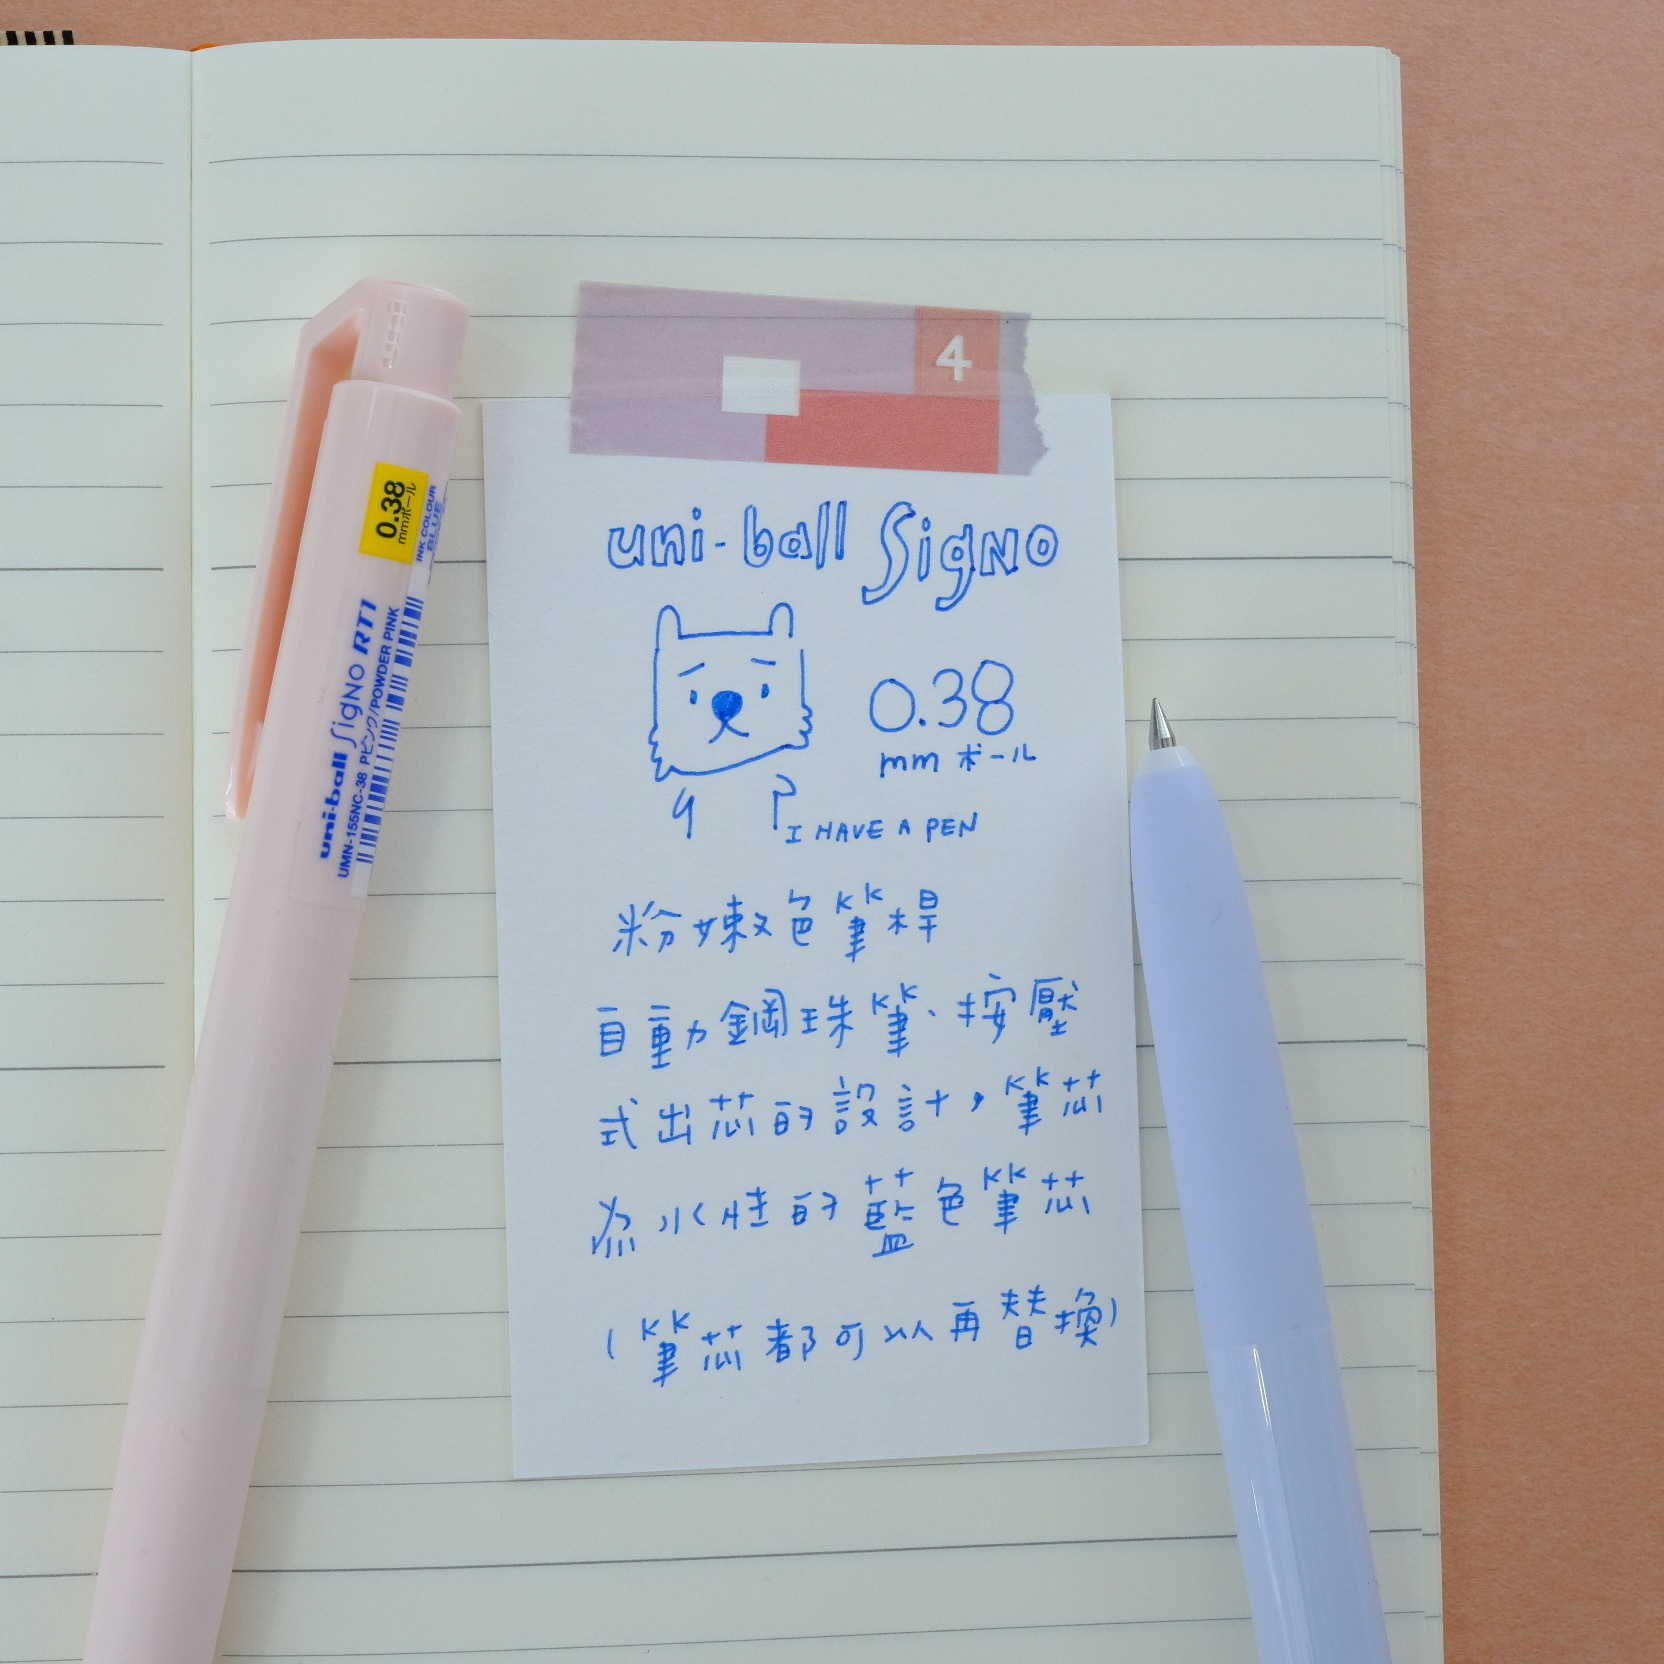 uni
0.38
mmボール
INK COLOUR
BLUE
uni-ball SigNO RT1
UMN-155NC-38 Pピンク/POWDER PINK
4
uni-ball SigNO
0.38
mm ボール
I HAVE A PEN
粉嫩色筆桿
自動鋼珠筆、按壓
式出芯的設計，筆芯
為水性的藍色筆芯
(筆芯都可以再替換)